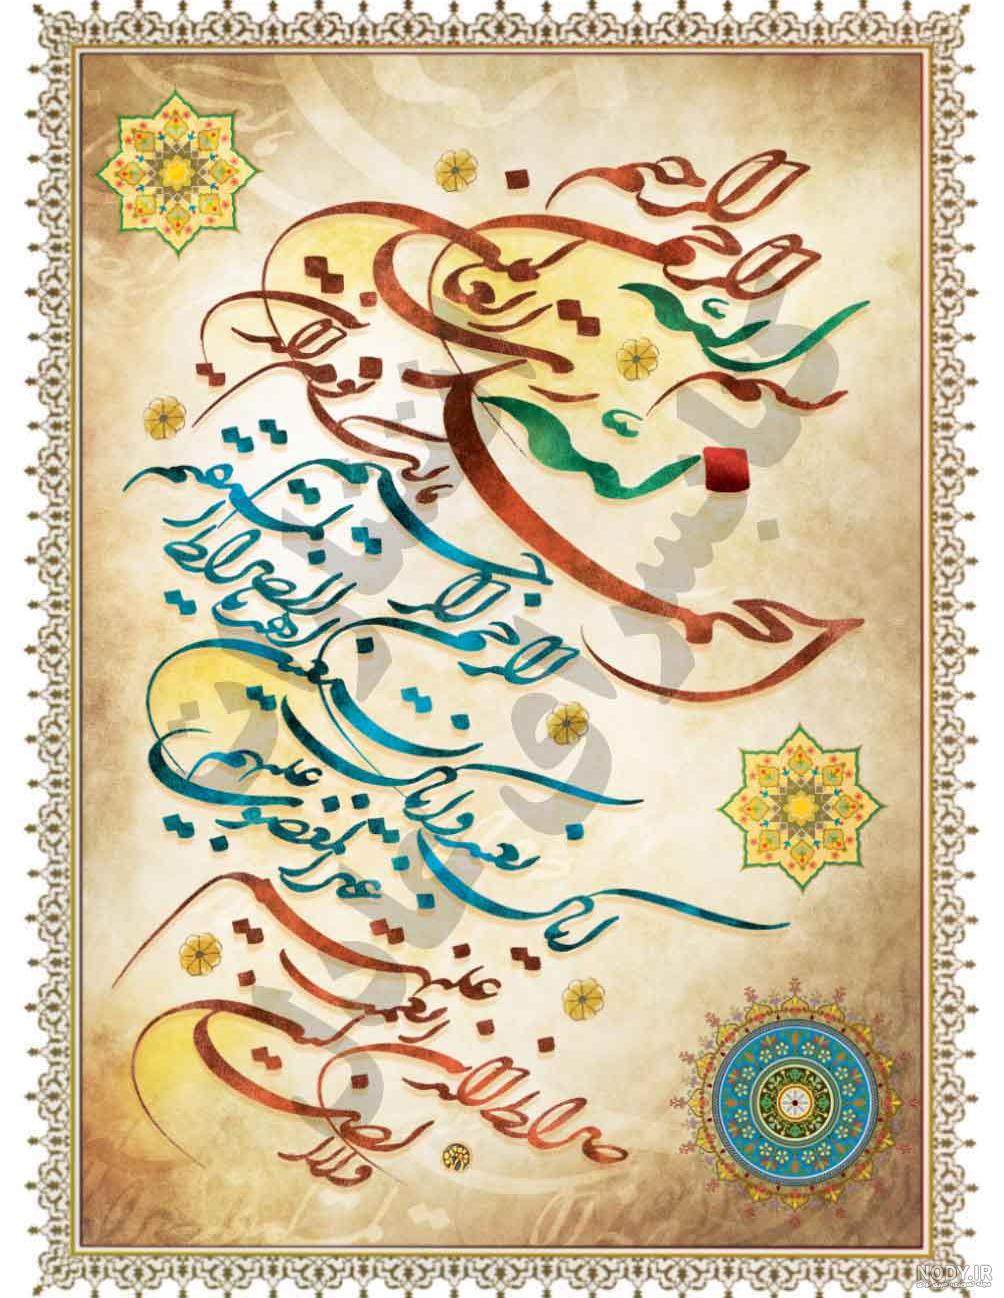 بسم الله الرحمن الرحیم
الحمد لله رب العالمین
الرحمن الرحیم
مالک یوم الدین
ایاک نعبد و ایاک نستعین
اهدنا الصراط المستقیم
صراط الذین انعمت علیهم
غیر المغضوب علیهم
ولا الضالین
NODY.IR